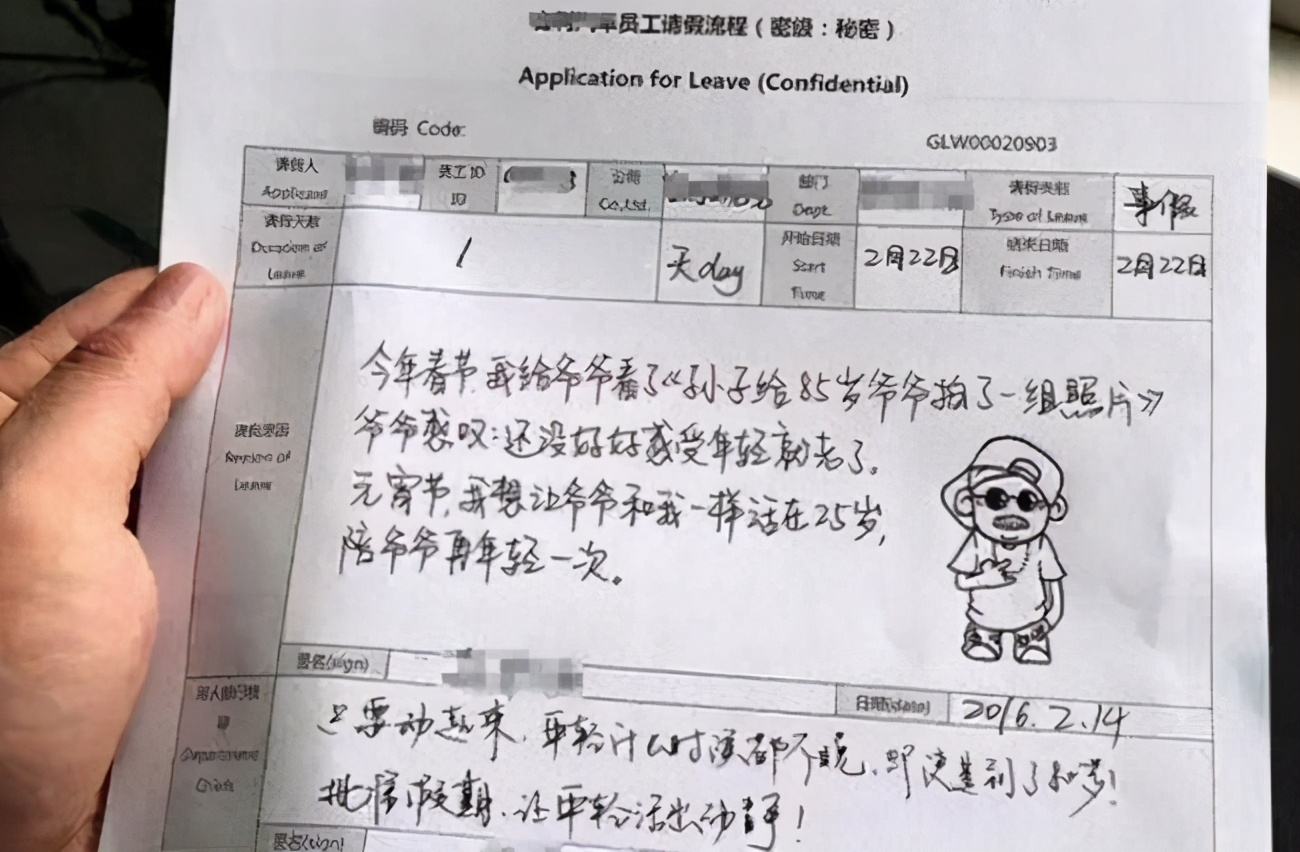 员工请假流程(密级:秘密)
Application for Leave (Confidential)
编码 Code: GLW00020903
请假人 员工ID 公司 部门 请假类型 事假
ID Co.,Ltd. Dept Type of Leave
请假天数 1 天day 开始日期 2月22日 结束日期 2月22日
Duration of Leave Start Time Finish Time
今年春节,我给爷爷看了《孙子给85岁爷爷拍了一组照片》
爷爷感叹:还没好好感受年轻就老了。
元宵节,我想让爷爷和我一样活在25岁,
陪爷爷再年轻一次。
请假原因
Leave
签名(sign) 日期 2016.2.14
只要动起来,年轻什么时候都不晚,即便是到了85岁!
批准假期,让年轻活出动静!
签名(sign)